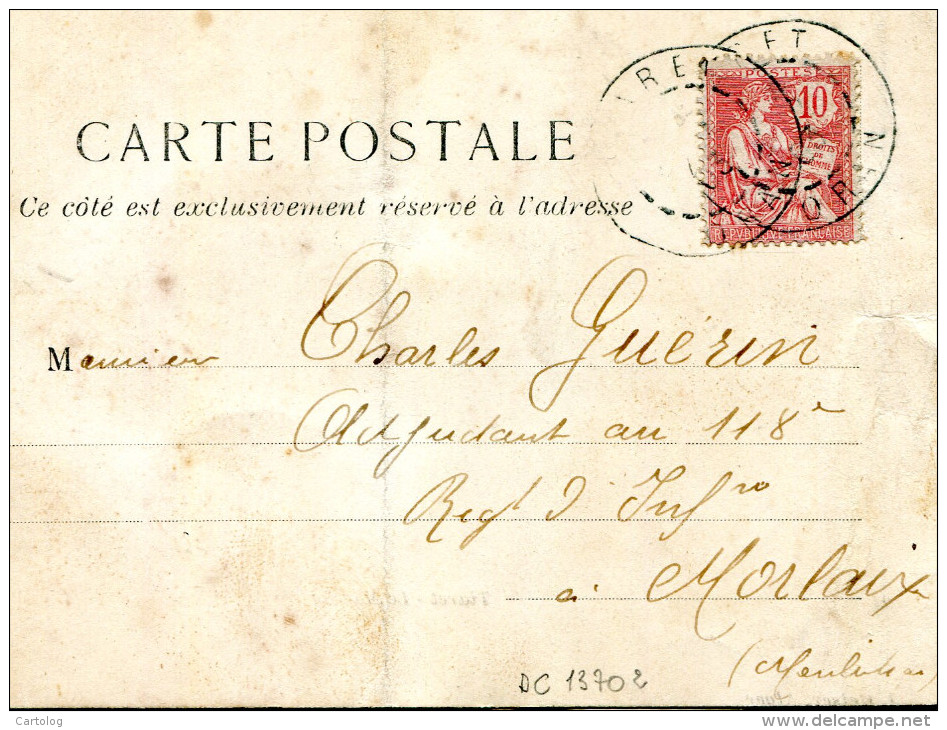 POSTES
10
DROITS
DE
L'HOMME
REPVBLIQVE FRANÇAISE
CARTE POSTALE
Ce côté est exclusivement réservé à l'adresse
Monsieur Charles Guérin
Adjudant au 118e
Regt d'Infrie
à Morlaix
DC 13702
Cartolog
www.delcampe.net